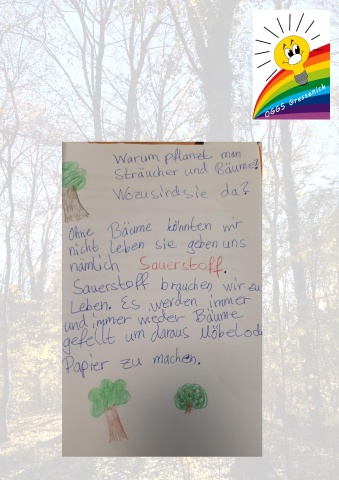 OGGS Gressenich
Warum pflanzt man
Sträucher und Bäume?
Wozu sind sie da?
Ohne Bäume könnten wir
nicht leben sie geben uns
nämlich Sauerstoff.
Sauerstoff brauchen wir zu
Leben. Es werden immer
und immer wieder Bäume
gefellt um daraus Möbel ode
Papier zu machen.